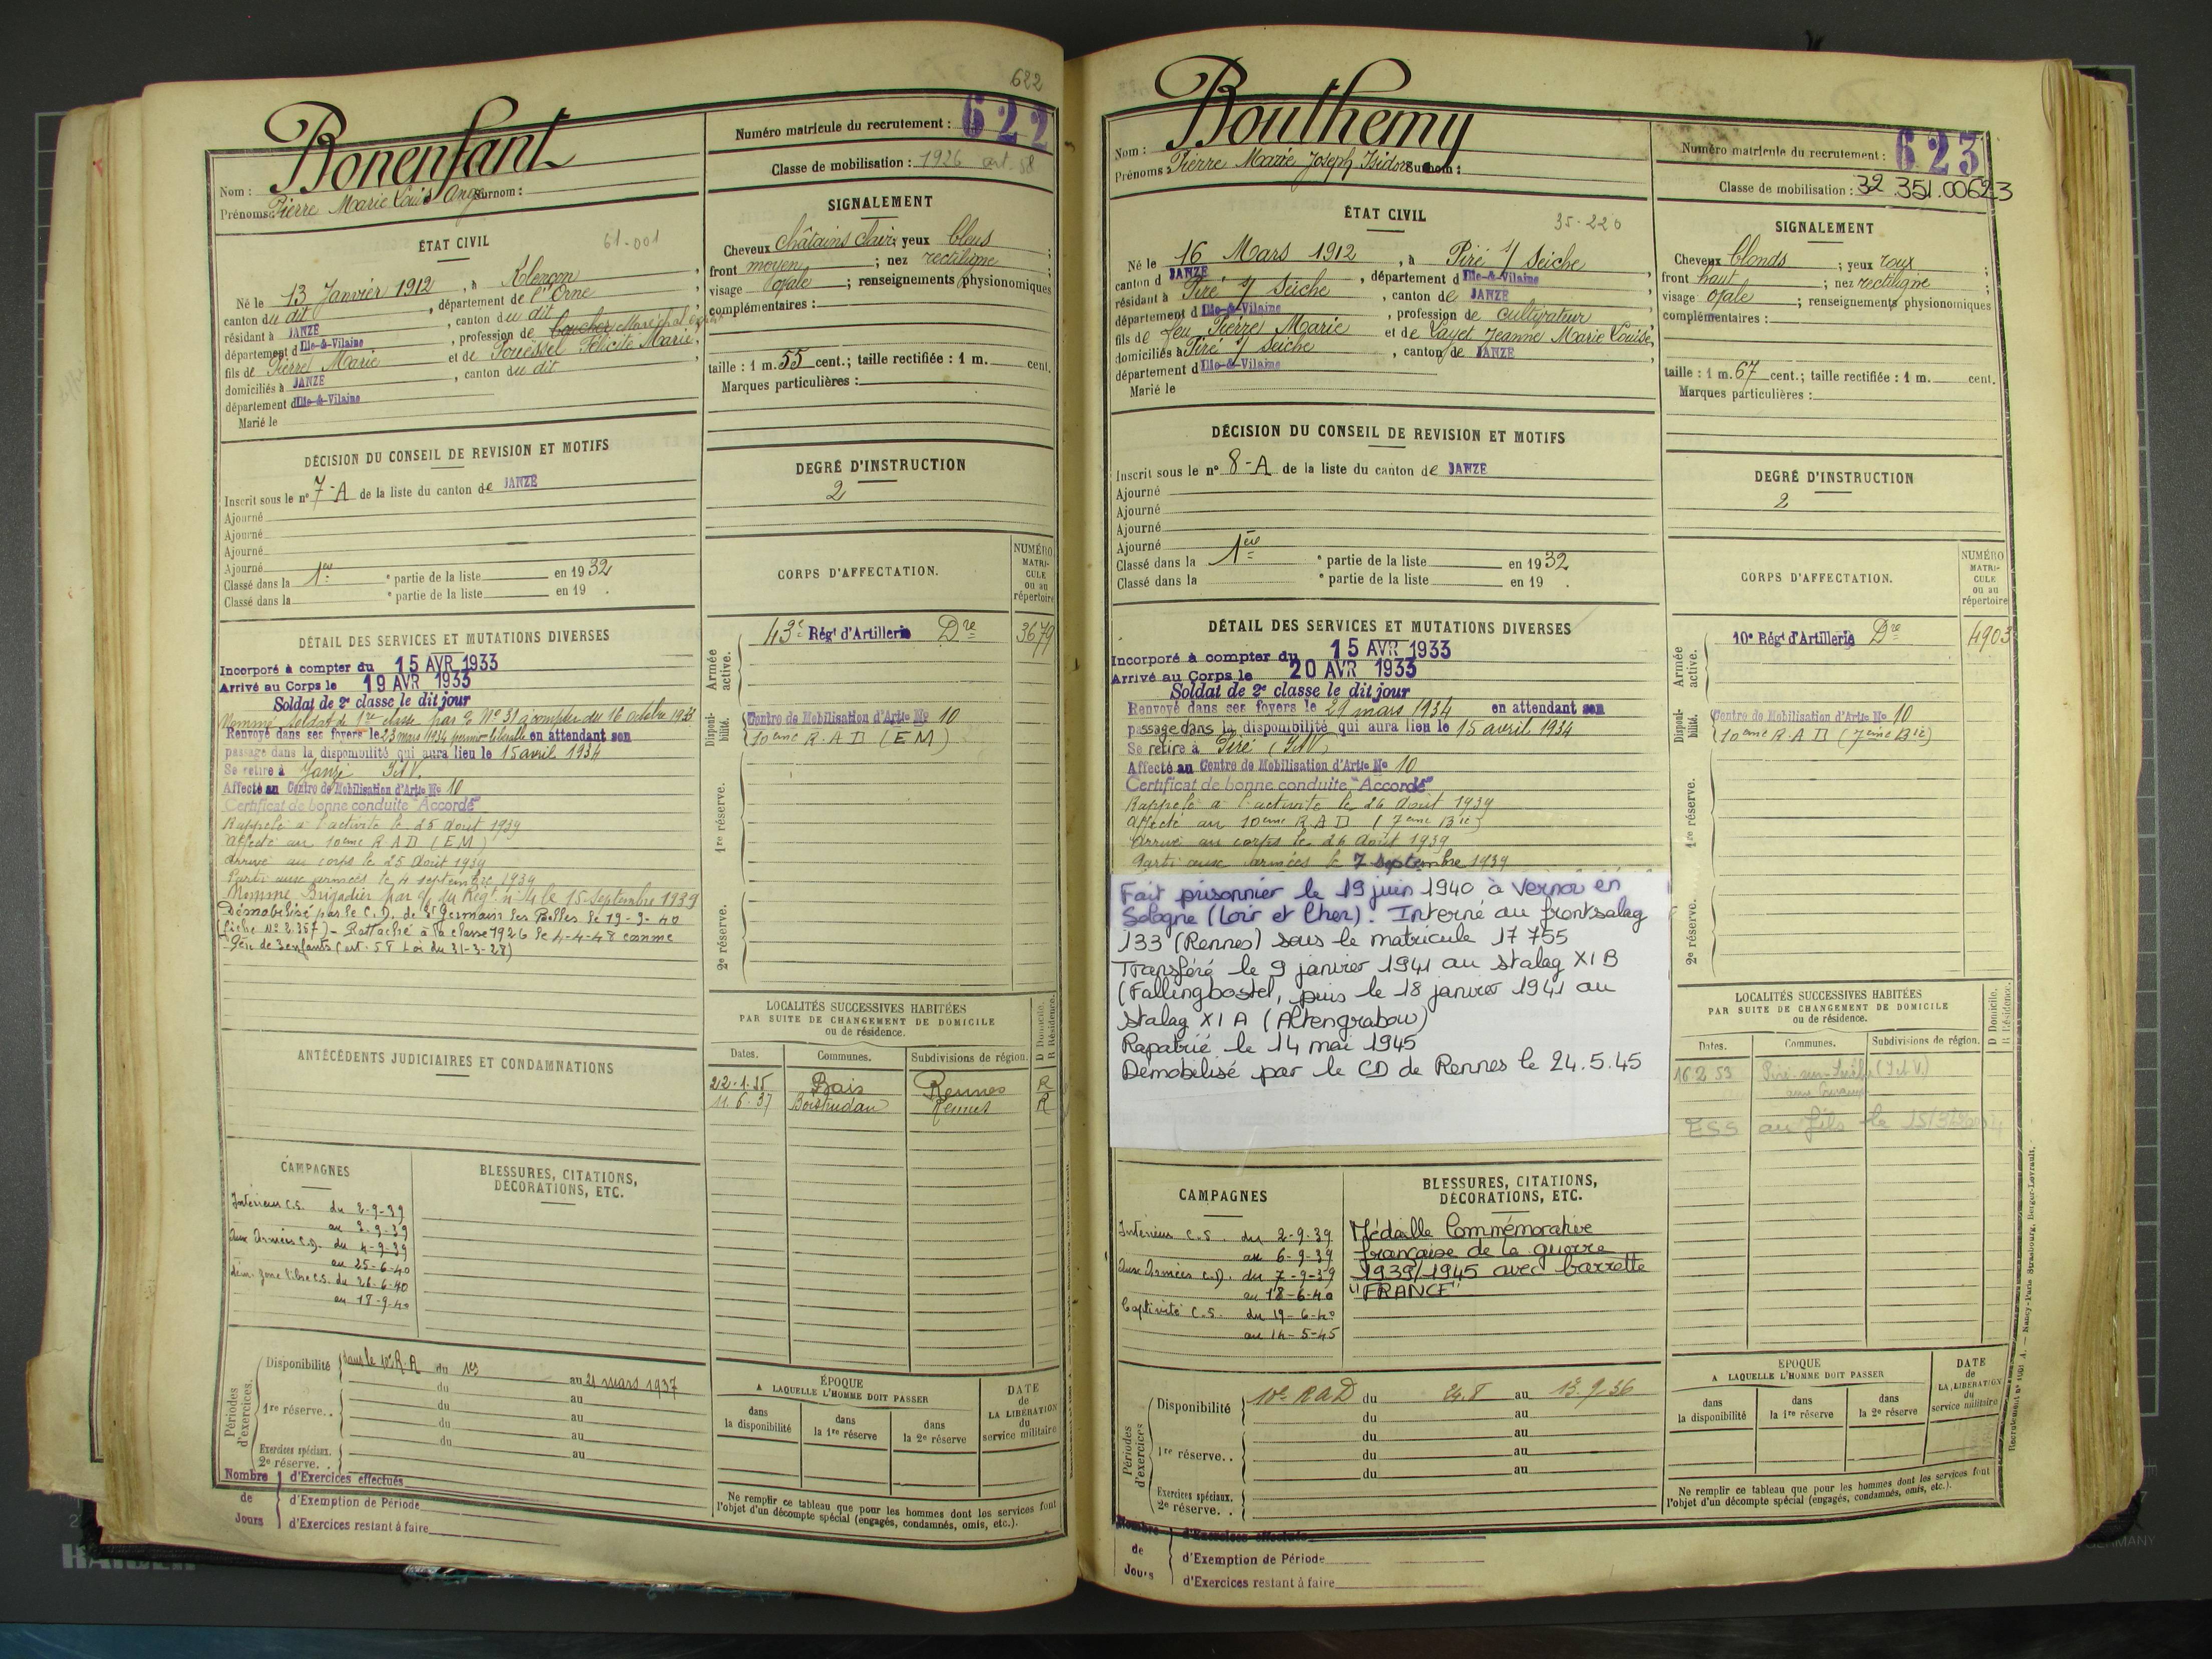 622
Bonenfant
Nom :
Prénoms : Pierre Marie Louis Ange Surnom :
Numéro matricule du recrutement : 622
Classe de mobilisation : 1926 art. 58
ÉTAT CIVIL
61-001
Né le 13 Janvier 1912, à Alençon,
canton du dit, département de l'Orne,
résidant à JANZÉ, canton du dit,
département d Ille-&-Vilaine, profession de boucher Maréchal
fils de Pierre Marie et de Fouessel Félicité Marie,
domiciliés à JANZÉ, canton du dit
département d Ille-&-Vilaine
Marié le
SIGNALEMENT
Cheveux châtains clair; yeux bleus ;
front moyen ; nez rectiligne ;
visage ovale ; renseignements physionomiques
complémentaires :
taille : 1 m. 55 cent.; taille rectifiée : 1 m. cent.
Marques particulières :
DÉCISION DU CONSEIL DE REVISION ET MOTIFS
Inscrit sous le n° 7-A de la liste du canton de JANZÉ
Ajourné
Ajourné
Ajourné
Ajourné
Classé dans la 1ère partie de la liste en 1932
Classé dans la e partie de la liste en 19 .
DEGRÉ D'INSTRUCTION
2
DÉTAIL DES SERVICES ET MUTATIONS DIVERSES
Incorporé à compter du 15 AVR 1933
Arrivé au Corps le 19 AVR 1933
Soldat de 2e classe le dit jour
Nommé soldat de 1re classe par O. N° 31 à compter du 16 octobre 1933
Renvoyé dans ses foyers le 23 mars 1934 en attendant son
passage dans la disponibilité qui aura lieu le 15 avril 1934
Se retire à Janzé I.&V.
Affecté au Centre de Mobilisation d'Artie No 10
Certificat de bonne conduite "Accordé"
Rappelé à l'activité le 25 Août 1939
Affecté au 10eme R A D (E M)
Arrivé au corps le 25 Août 1939
Parti aux armées le 4 septembre 1939
Nommé Brigadier par O/ du Régt. n° 4 le 15 Septembre 1939
Démobilisé par le C.D. de St Germain les Belles le 19-9-40
(fiche No 2.357) - Rattaché à la classe 1926 le 4-4-48 comme
Père de 3 enfants (art. 58 Loi du 31-3-28)
CORPS D'AFFECTATION.
NUMÉRO MATRICULE ou au répertoire
Armée active.
43e Régt d'Artillerie Dre 3679
Disponibilité.
Centre de Mobilisation d'Artie No 10
10eme R.A D (E M)
1re réserve.
2e réserve.
ANTÉCÉDENTS JUDICIAIRES ET CONDAMNATIONS
LOCALITÉS SUCCESSIVES HABITÉES
PAR SUITE DE CHANGEMENT DE DOMICILE
ou de résidence.
D Domicile.
R Résidence.
Dates. Communes. Subdivisions de région.
22-1-35 Bais Rennes R
11.6.37 Boistrudan Rennes R
CAMPAGNES
Intérieur C.S. du 2-9-39
au 3-9-39
Aux Armées C.D. du 4-9-39
au 25-6-40
dém. zone libre C.S. du 26-6-40
au 18-9-40
BLESSURES, CITATIONS,
DÉCORATIONS, ETC.
Périodes d'exercices.
Disponibilité dans le 10e R.A du 1er au 21 mars 1937
du au
1re réserve.. du au
du au
du au
Exercices spéciaux.
2e réserve. .
Nombre de Jours
d'Exercices effectués
d'Exemption de Période
d'Exercices restant à faire
ÉPOQUE
A LAQUELLE L'HOMME DOIT PASSER
dans la disponibilité
dans la 1re réserve
dans la 2e réserve
DATE de LA LIBÉRATION du service militaire
Ne remplir ce tableau que pour les hommes dont les services font
l'objet d'un décompte spécial (engagés, condamnés, omis, etc.).
Bouthemy
Nom :
Prénoms : Pierre Marie Joseph Isidore Surnom :
Numéro matricule du recrutement : 623
Classe de mobilisation : 32.351.00623
ÉTAT CIVIL
35-220
Né le 16 Mars 1912, à Piré s/ Seiche,
canton d JANZÉ, département d Ille-&-Vilaine,
résidant à Piré s/ Seiche, canton de JANZÉ,
département d Ille-&-Vilaine, profession de cultivateur
fils de feu Pierre Marie et de Layet Jeanne Marie Louise,
domiciliés à Piré s/ Seiche, canton de JANZÉ,
département d Ille-&-Vilaine
Marié le
SIGNALEMENT
Cheveux blonds ; yeux roux ;
front haut ; nez rectiligne ;
visage ovale ; renseignements physionomiques
complémentaires :
taille : 1 m. 67 cent.; taille rectifiée : 1 m. cent.
Marques particulières :
DÉCISION DU CONSEIL DE REVISION ET MOTIFS
Inscrit sous le n° 8-A de la liste du canton de JANZÉ
Ajourné
Ajourné
Ajourné
Ajourné
Classé dans la 1ère partie de la liste en 1932
Classé dans la e partie de la liste en 19 .
DEGRÉ D'INSTRUCTION
2
DÉTAIL DES SERVICES ET MUTATIONS DIVERSES
Incorporé à compter du 15 AVR 1933
Arrivé au Corps le 20 AVR 1933
Soldat de 2e classe le dit jour
Renvoyé dans ses foyers le 21 mars 1934 en attendant son
passage dans la disponibilité qui aura lieu le 15 avril 1934
Se retire à Piré (I&V)
Affecté au Centre de Mobilisation d'Artie No 10
Certificat de bonne conduite "Accordé"
Rappelé à l'activité le 26 Août 1939
Affecté au 10eme R A D (7eme Bie)
Arrivé au corps le 26 Août 1939
Parti aux armées le 7 septembre 1939
Fait prisonnier le 19 juin 1940 à Vernou en
Sologne (Loir et Cher). Interné au frontsalag
133 (Rennes) sous le matricule 17 755
Transféré le 9 janvier 1941 au stalag XI B
(Fallingbostel, puis le 18 janvier 1941 au
stalag XI A (Altengrabow)
Rapatrié le 14 mai 1945
Démobilisé par le CD de Rennes le 24.5.45
CORPS D'AFFECTATION.
NUMÉRO MATRICULE ou au répertoire
Armée active.
10e Régt d'Artillerie Dre 4903
Disponibilité.
Centre de Mobilisation d'Artie No 10
10eme R A D (7eme Bie)
1re réserve.
2e réserve.
LOCALITÉS SUCCESSIVES HABITÉES
PAR SUITE DE CHANGEMENT DE DOMICILE
ou de résidence.
D Domicile.
R Résidence.
Dates. Communes. Subdivisions de région.
16 2 53 Piré-sur-Seiche (I.&V.)
ESS au fils le
CAMPAGNES
Intérieur C.S. du 2-9-39
au 6-9-39
Aux Armées C.D. du 7-9-39
au 18-6-40
Captivité C.S. du 19-6-40
au 14-5-45
BLESSURES, CITATIONS,
DÉCORATIONS, ETC.
Médaille Commémorative
française de la guerre
1939/1945 avec barrette
"FRANCE"
Périodes d'exercices
Disponibilité 10e RAD du 24.8 au 13.9.36
du au
du au
1re réserve.. du au
du au
Exercices spéciaux.
2e réserve. .
Nombre de Jours
d'Exercices effectués
d'Exemption de Période
d'Exercices restant à faire
EPOQUE
A LAQUELLE L'HOMME DOIT PASSER
dans la disponibilité
dans la 1re réserve
dans la 2e réserve
DATE de LA LIBÉRATION du service militaire
Ne remplir ce tableau que pour les hommes dont les services font
l'objet d'un décompte spécial (engagés, condamnés, omis, etc.).
Nancy-Paris-Strasbourg, Berger-Levrault.
GERMANY